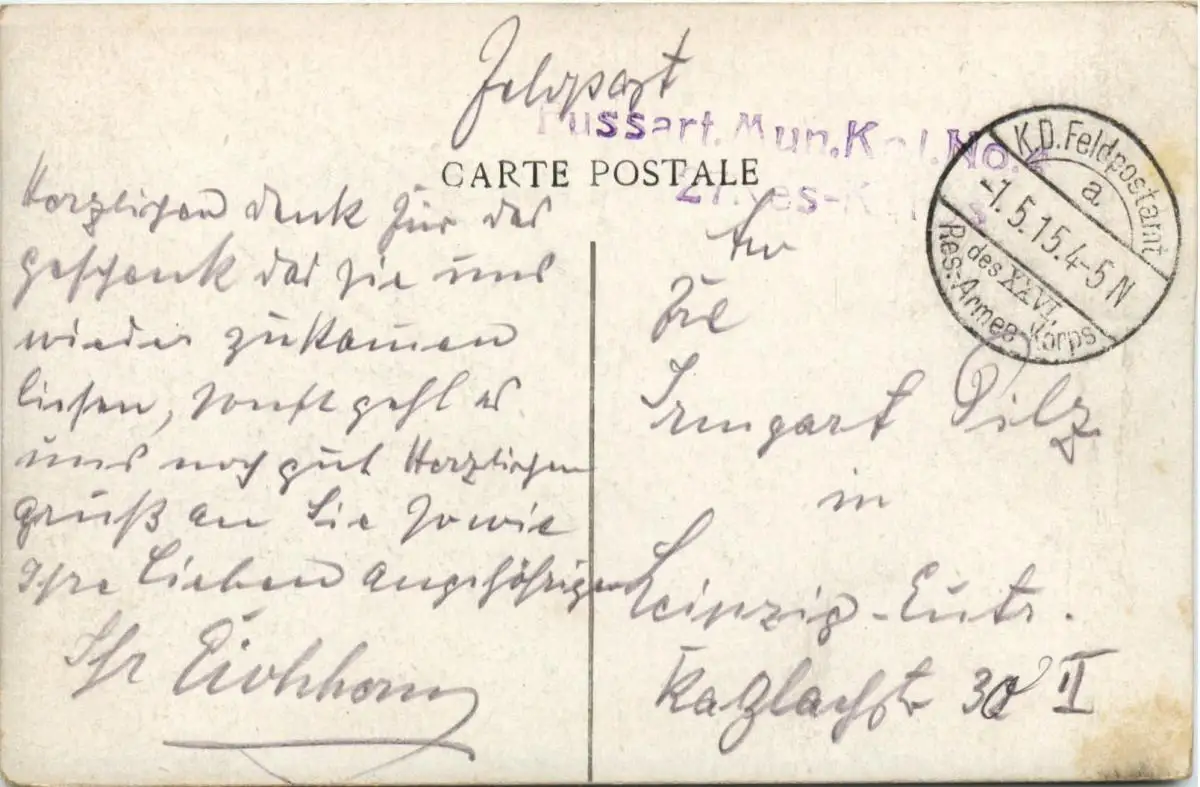 Feldpost
Fussart. Mun. Kol. No.
CARTE POSTALE
K.D. Feldpostamt
a
-1.5.15.4-5N
des XXVI
Res.-Armee-Korps
Herzlichen dank für das
geschenk das Sie uns
wieder zukomen
liesen, sonst gehl es
uns noch gut Herzlichen
gruß an Sie sowie
Ihre Lieben angehörigen
Ihr Eichhorn
An
Irmgart Pilz
in
Leipzig-Eutr.
II